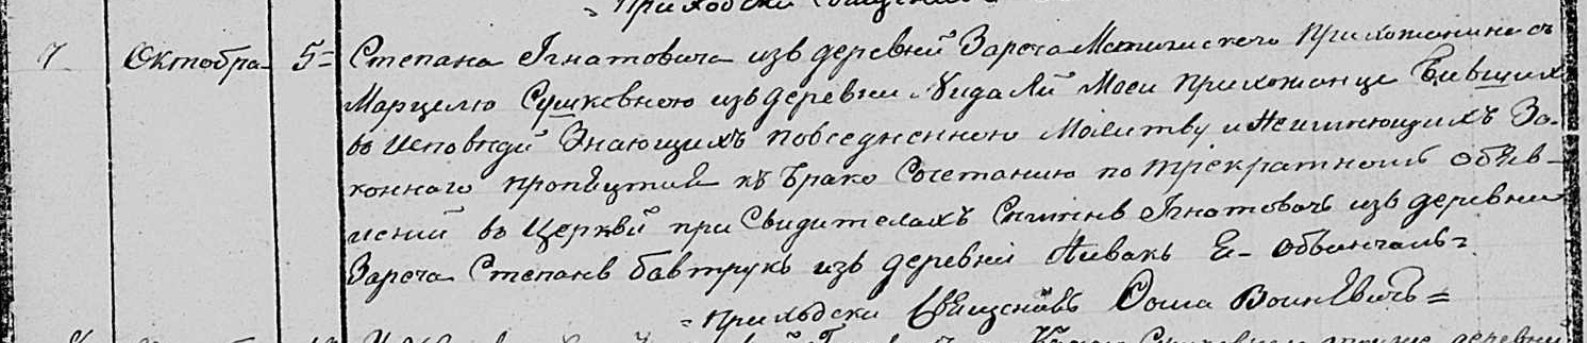 7 Октобра 5= Степана Игнатовича изъ деревней Зареча Мстижскего Прихожанина съ
Марцелю Сушковною изъ деревни Аидалй Моей Прихожанце Бывших
во исповедй Знающихъ повседневною Молитву и Неимеющихъ За-
коннаго пропятия къ Брако Сочетанию по трекратномъ объяв-
лений во Церквй при Свидителахъ Игнатовичъ изъ деревни
Зареча Степанъ Бавтрукъ изъ деревни Нивакъ Е- обвинчалъ=
= приходски Священикъ Фома Воиневичъ=
деревни